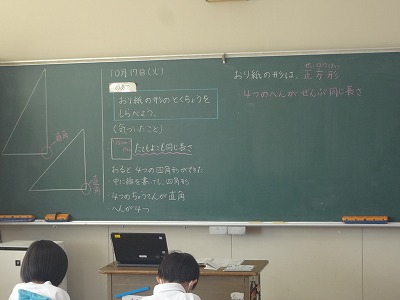 直角
直角
10月17日(火)
めあて
おり紙の形のとくちょうを
しらべよう。
(気づいたこと)
たてもよこも同じ長さ
おると4つの四角形ができた
中に線を書いても、四角形
4つのちょう点が直角
へんが4つ
おり紙の形は、正方形
せいほうけい
4つのへんがぜんぶ同じ長さ